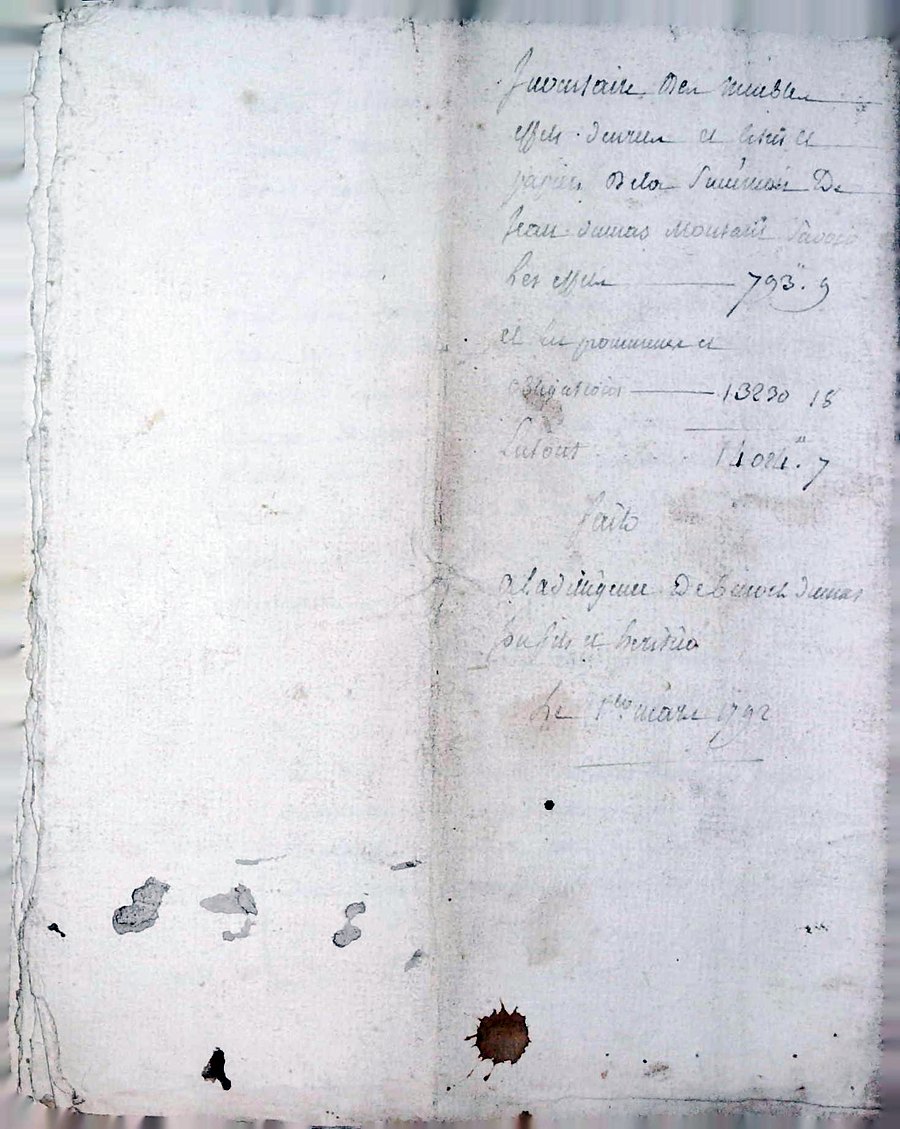 Inventaire des meubles
effets denrées et titres et
papiers de la Succession De
Jean dumas Montau
Les effets 793. 9
et les promesses et
obligations 13230 18
Entout 14024. 7
faite
a la diligence De Benoit dumas
son fils et heritier
Le 1er mars 1792